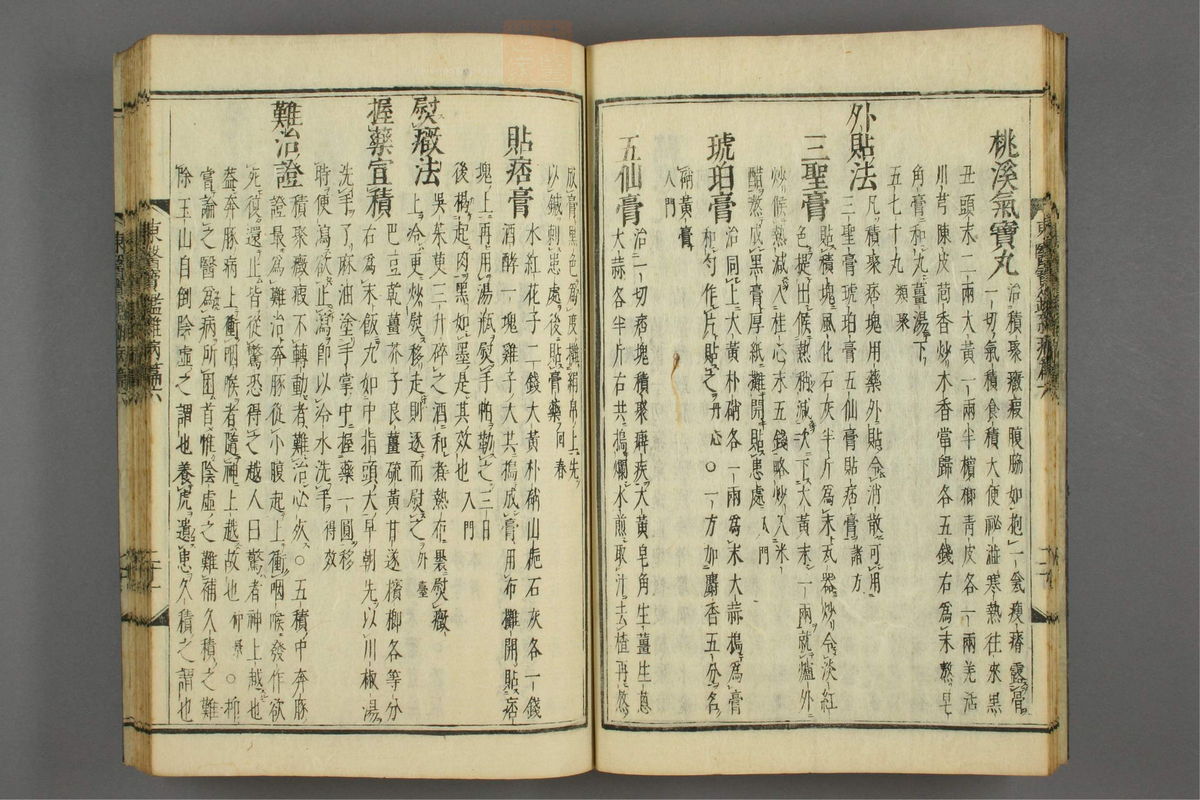 桃溪氣寶丸 治積聚癥瘕腹脇如抱一甕瘦瘠露骨
一切氣積食積大便祕澁寒熱往來黑
丑頭末二兩大黃一兩半檳榔靑皮各一兩羌活
川芎陳皮茴香炒木香當歸各五錢右爲末熬皂
角膏和丸薑湯下
五七十丸 類聚
外貼法 凡積聚痞塊用藥外貼令消散可用
三聖膏琥珀膏五仙膏貼痞膏 諸方
三聖膏 貼積塊風化石灰半斤爲末瓦器炒令淡紅
色提出候熱稍減次下大黃末一兩就爐外
炒候熱減入桂心末五錢略炒入米
醋熬成黑膏厚紙攤開貼患處 入門
琥珀膏 治同上大黃朴硝各一兩爲末大蒜搗爲膏
和勻作片貼之 丹心 〇一方加麝香五分名
硝黃膏
入門
五仙膏 治一切痞塊積聚癖疾大黃皂角生薑生葱
大蒜各半斤右共搗爛水煎取汁去楂再熬
成膏黑色爲度攤絹帛上先
以鍼刺患處後貼膏藥 回春
貼痞膏 水紅花子二錢大黃朴硝山梔石灰各一錢
酒酵一塊雞子大共搗成膏用布攤開貼痞
塊上再用湯瓶熨手帕勒之三日
後揭起肉黑如墨是其效也 入門
熨癥法 吳茱萸三升碎之酒和煮熱布裹熨癥
上冷更炒熨移走則逐而熨之 外臺
握藥宣積 巴豆乾薑芥子良薑硫黃甘遂檳榔各等分
右爲末飯丸如中指頭大早朝先以川椒湯
洗手了麻油塗手掌中握藥一圓移
時便瀉欲止瀉卽以冷水洗手 得效
難治證 積聚癥瘕不轉動者難治必死〇五積中奔豚
證最爲難治奔豚從小腹起上衝咽喉發作欲
死復還止皆從驚恐得之越人曰驚者神上越也
蓋奔豚病上衝咽喉者隨神上越故也 仲景 〇抑
嘗論之醫爲病所困首惟陰虛之難補久積之難
除玉山自倒陰虛之謂也養虎遺患久積之謂也